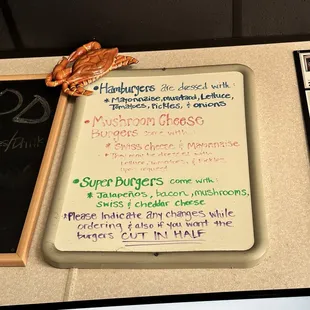 • Hamburgers are dressed with:
* Mayonnaise, mustard, Lettuce,
Tomatoes, Pickles, & onions
• Mushroom Cheese
Burgers come with:
* Swiss cheese & Mayonnaise
* This may be dressed with
• Super Burgers come with:
* Jalapeños, bacon, mushrooms,
Swiss & cheddar cheese
* Please Indicate any changes while
ordering & also if you want the
burgers CUT IN HALF